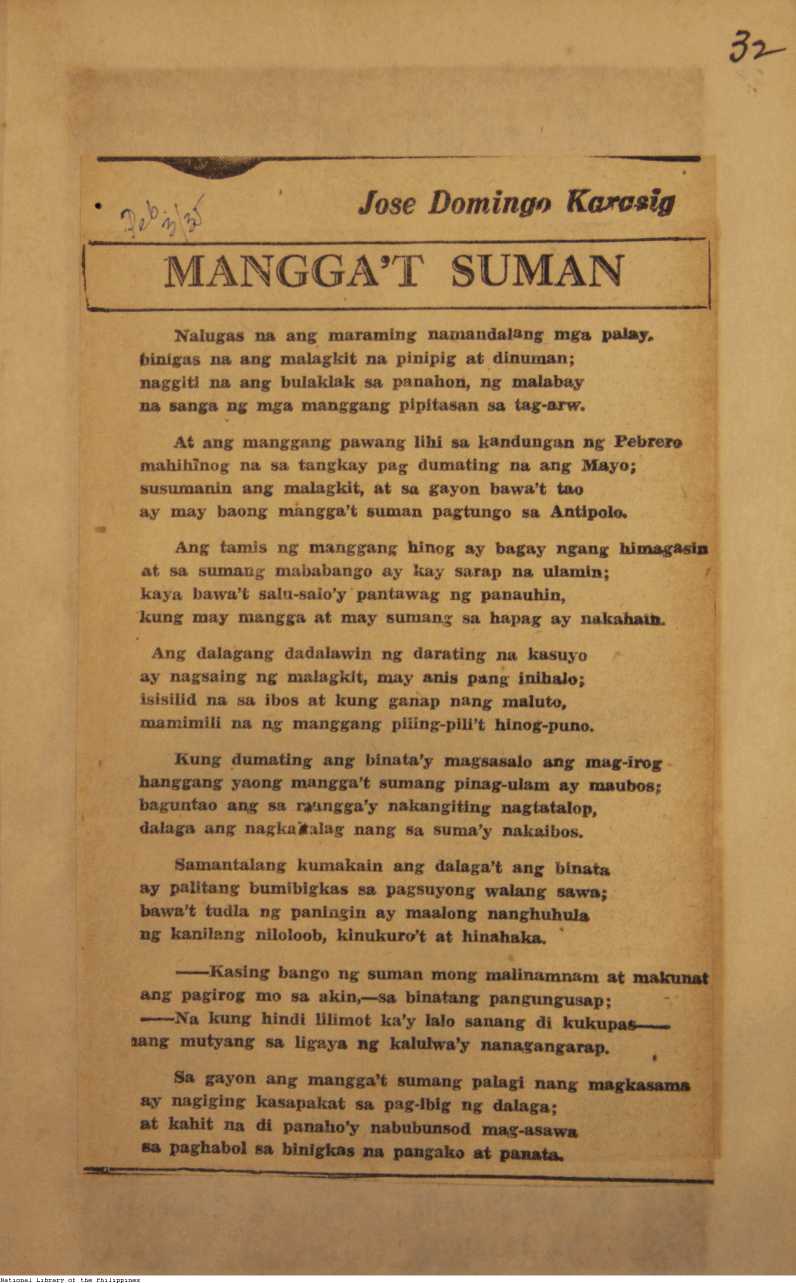 32
Feb. 3/35
Jose Domingo Karasig
MANGGA'T SUMAN
Nalugas na ang maraming namandalang mga palay,
binigas na ang malagkit na pinipig at dinuman;
naggiti na ang bulaklak sa panahon, ng malabay
na sanga ng mga manggang pipitasan sa tag-arw.
At ang manggang pawang lihi sa kandungan ng Pebrero
mahihinog na sa tangkay pag dumating na ang Mayo;
susumanin ang malagkit, at sa gayon bawa't tao
ay may baong mangga't suman pagtungo sa Antipolo.
Ang tamis ng manggang hinog ay bagay ngang himagasin
at sa sumang mababango ay kay sarap na ulamin;
kaya bawa't salu-salo'y pantawag ng panauhin,
kung may mangga at may sumang sa hapag ay nakahain.
Ang dalagang dadalawin ng darating na kasuyo
ay nagsaing ng malagkit, may anis pang inihalo;
isisilid na sa ibos at kung ganap nang maluto,
mamimili na ng manggang piling-pili't hinog-puno.
Kung dumating ang binata'y magsasalo ang mag-irog
hanggang yaong mangga't sumang pinag-ulam ay maubos;
baguntao ang sa mangga'y nakangiting nagtatalop,
dalaga ang nagkakalag nang sa suma'y nakaibos.
Samantalang kumakain ang dalaga't ang binata
ay palitang bumibigkas sa pagsuyong walang sawa;
bawa't tudla ng paningin ay maalong nanghuhula
ng kanilang niloloob, kinukuro't at hinahaka.
——Kasing bango ng suman mong malinamnam at makunat
ang pagirog mo sa akin,—sa binatang pangungusap;
——Na kung hindi lilimot ka'y lalo sanang di kukupas——
ang mutyang sa ligaya ng kalulwa'y nanagangarap.
Sa gayon ang mangga't sumang palagi nang magkasama
ay nagiging kasapakat sa pag-ibig ng dalaga;
at kahit na di panaho'y nabubunsod mag-asawa
sa paghabol sa binigkas na pangako at panata.
National Library of the Philippines